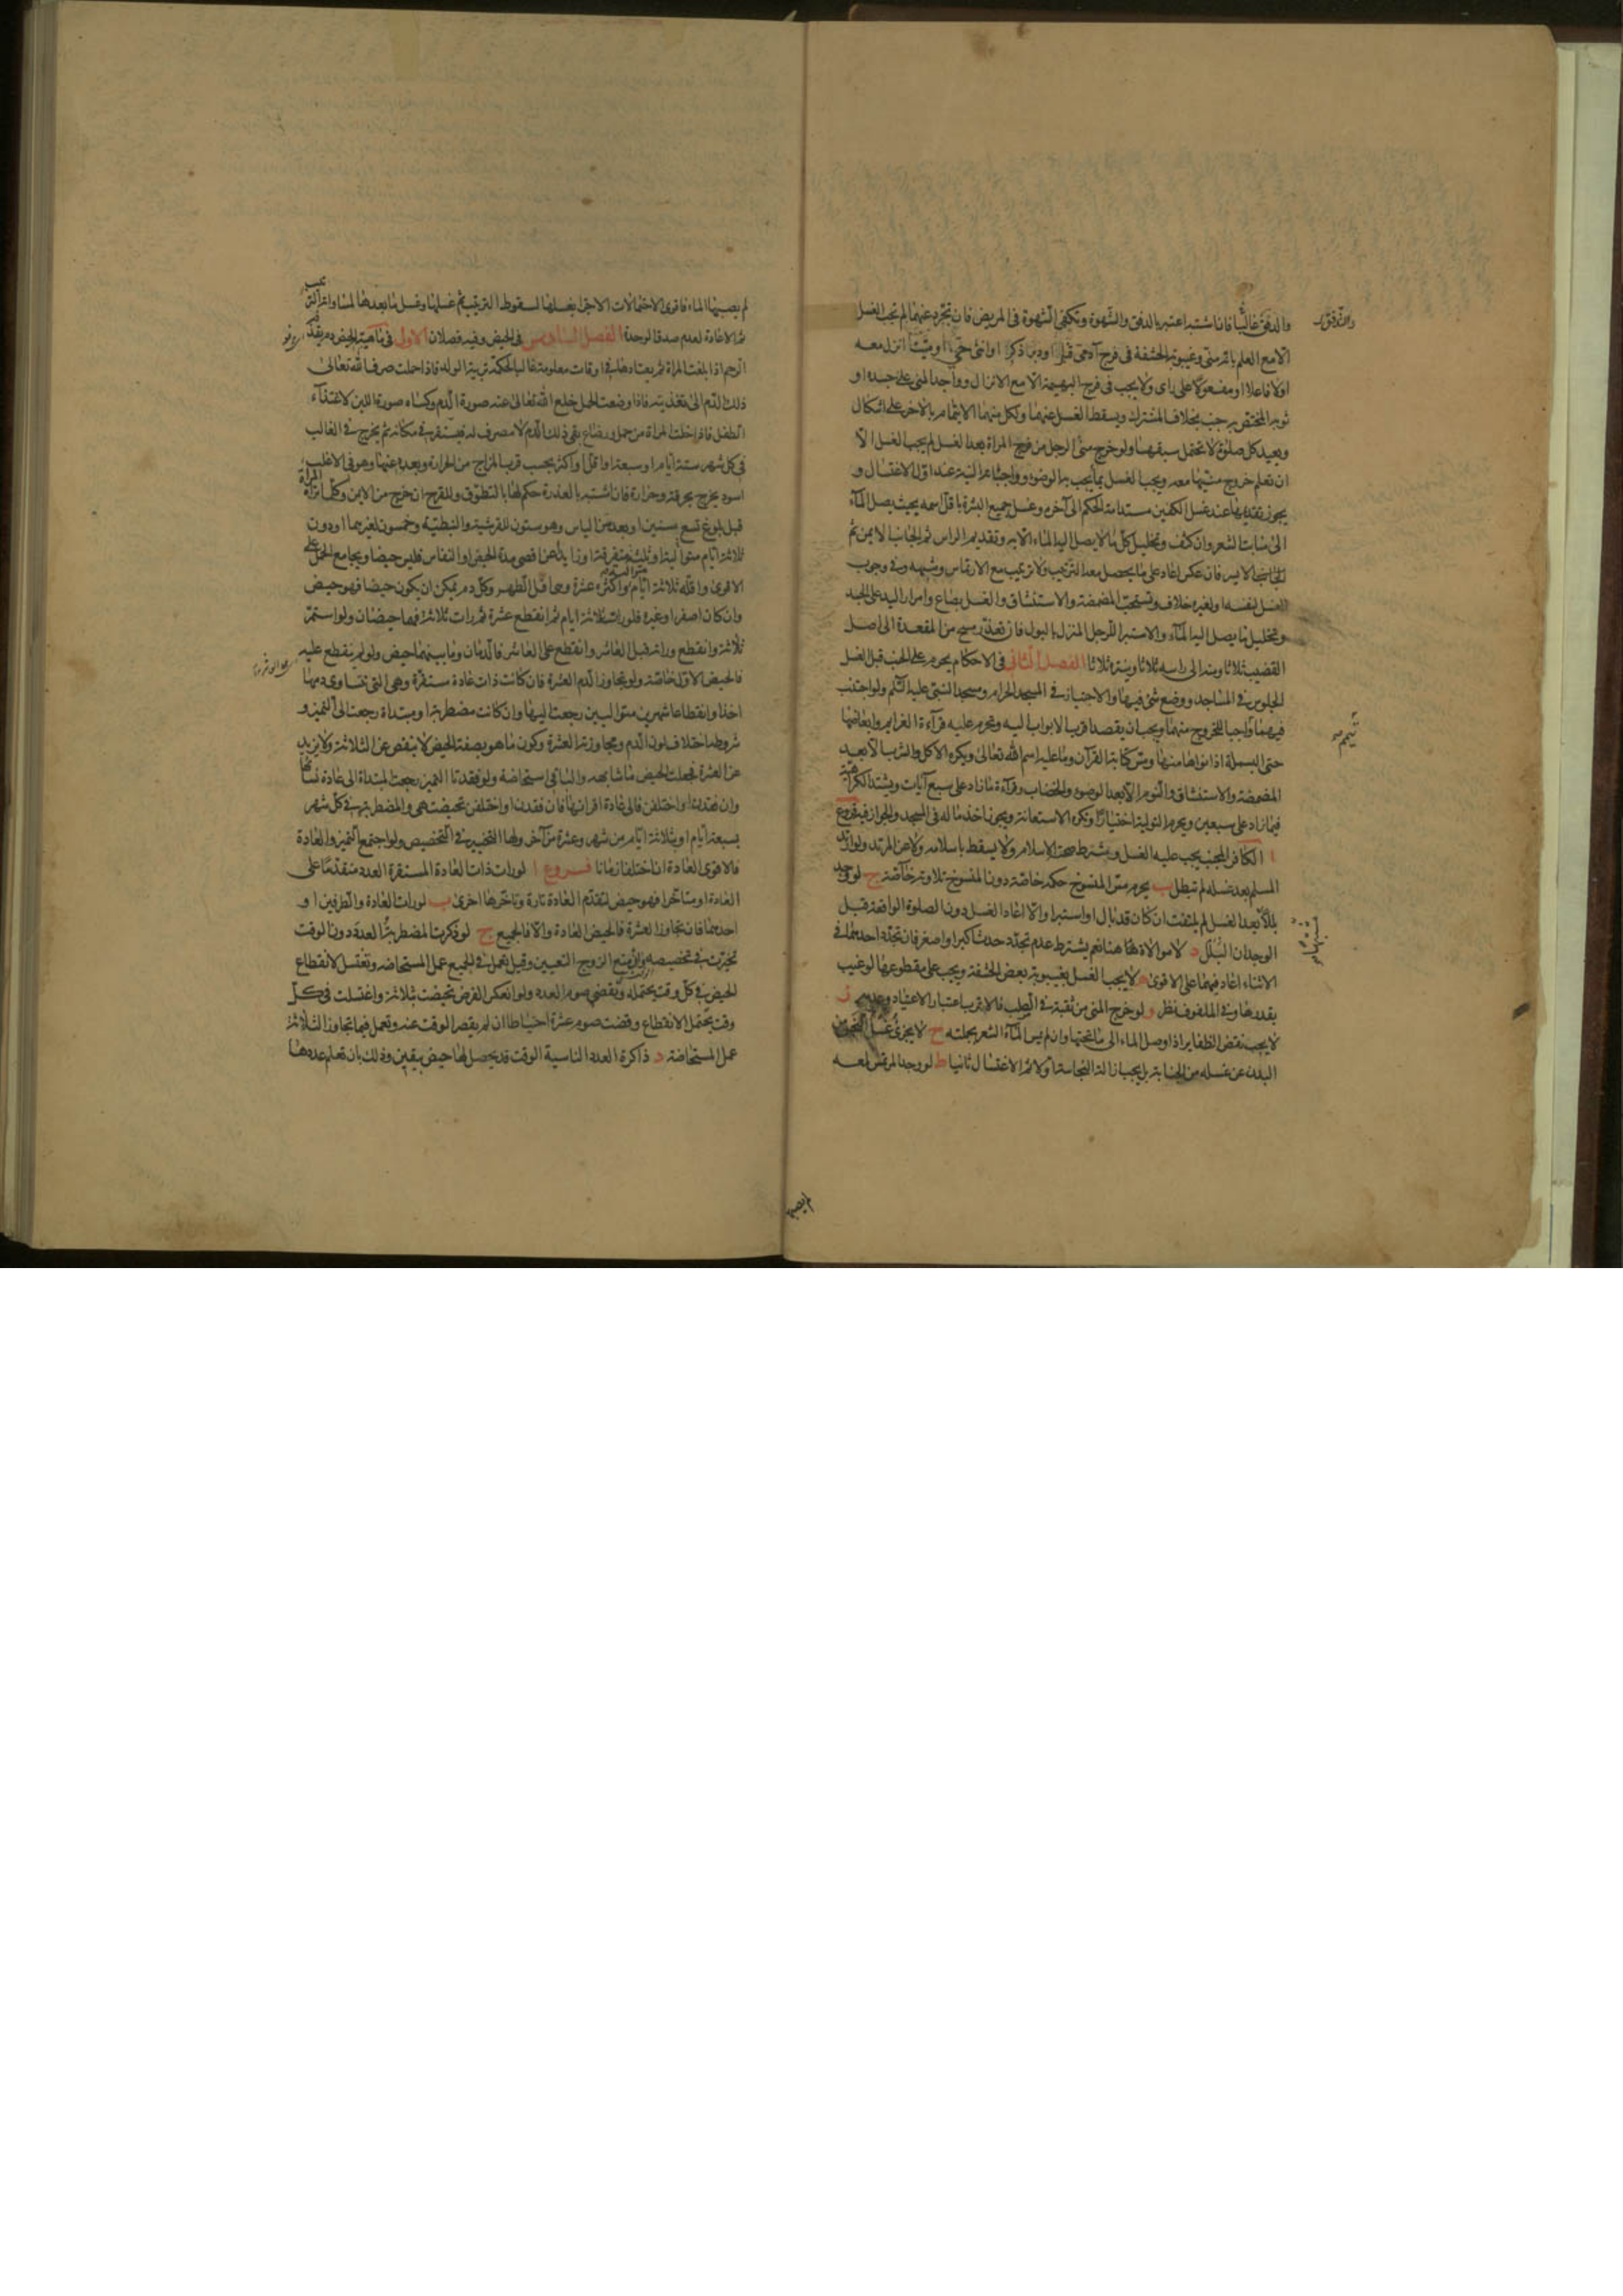 والدفق غالبا فان اشتبه اعتبر بالدفق والشهوة وتكفي الشهوة فى المريض فان تجرد عنهما لم يجب الغسل
الا مع العلم بانه منى وغيبوبة الحشفة فى فرج آدمى قبل او دبر ذكر او انثى حى او ميت انزل معه
اولا فاعلا او مفعولا على راى ولا يجب فى فرج البهيمة الا مع الانزال وواجد المنى على جسده او
ثوبه المختص به جنب بخلاف المشترك ويسقط الغسل عنهما ولكل منهما الايتمام بالاخر على اشكال
ويعيد كل صلوة لا تحتمل سبقها ولو خرج منى الرجل من فرج المراة بعد الغسل لم يجب الغسل الا
ان تعلم خروج منيها معه ويجب الغسل بما يجب به الوضوء وواجباته النية عند اول الاغتسال و
يجوز تقديمها عند غسل الكفين مستدامة الحكم الى آخره وغسل جميع البشرة باقل اسمه بحيث يصل الماء
الى منابت الشعر وان كثف وتخليل كل ما لا يصل اليه الماء الا به وتقديم الراس ثم الجانب الايمن ثم
الجانب الايسر فان عكس اعاد على ما يحصل معه الترتيب ولا ترتيب مع الارتماس وشبهه وفى وجوب
الغسل لنفسه او لغيره خلاف وتستحب المضمضة والاستنشاق والغسل بصاع وامرار اليد على الجسد
وتخليل ما يصل اليه الماء والاستبراء للرجل المنزل بالبول فان تعذر مسح من المقعدة الى اصل
القضيب ثلاثا ومنه الى راسه ثلاثا وينتره ثلاثا الفصل الثانى فى الاحكام يحرم على الجنب قبل الغسل
الجلوس فى المساجد ووضع شئ فيها والاجتياز فى المسجد الحرام ومسجد النبى عليه السلم ولو اجنب
فيهما واجبا للخروج منهما ويجب ان يقصد اقرب الابواب اليه ويحرم عليه قراءة العزايم وابعاضها
حتى البسملة اذا نواها منها ومس كتابة القرآن وما عليه اسم الله تعالى ويكره الاكل والشرب الا بعد
المضمضة والاستنشاق والنوم الا بعد الوضوء والخضاب وقراءة ما زاد على سبع آيات ويشتد الكراهية
فيما زاد على سبعين ويحرم التولية اختيارا وتكره الاستعانة ويجوز اخذ ما له فى المسجد والجواز فيه فروع
ا الكافر المجنب يجب عليه الغسل ويشترط صحته الاسلام ولا يسقط باسلامه ولا عن المرتد ولو ارتد
المسلم بعد غسله لم تبطل ب يحرم مس المنسوخ حكمه خاصة دون المنسوخ تلاوته خاصة ج لو وجد
بللا بعد الغسل لم يلتفت ان كان قد بال او استبرا والا اعاد الغسل دون الصلوة الواقعة قبل
الوجدان البلل د لا موالاة هنا نعم يشترط عدم تجدد حدث اكبر او اصغر فان تجدد احدهما فى
الاثناء اعاد فيهما على الاقوى ه لا يجب الغسل بغيبوبة بعض الحشفة ويجب على مقطوعها لو غيب
بقدرها وفى الملفوف نظر و لو خرج المنى من ثقبة فى الصلب فالاقرب اعتبار الاعتياد وعدمه ز
لا يجب نقض الظفاير اذا وصل الماء الى ما تحتها وان لم يمس الماء الشعر بجملته ح لا يجزئ غسل النجس من
البدن عن غسله من الجنابة بل يجب ازالة النجاسة اولا ثم الاغتسال ثانيا ط لو وجد المرتمس لمعة
لم يصبها
لم يصبها الماء فاقوى الاحتمالات الاجتزاء بغسلها لسقوط الترتيب ثم غسلها وغسل ما بعدها لمساواته الترتيب
ثم الاعادة لعدم صدق الوحدة الفصل السادس فى الحيض وفيه فصلان الاول فى ماهيته الحيض دم يقذفه
الرحم اذا بلغت المراة ثم يعتادها فى اوقات معلومة غالبا لحكمة تربية الولد فاذا حملت صرف الله تعالى
ذلك الدم الى تغذيته فاذا وضعت الحمل خلع الله تعالى عنه صورة الدم وكساه صورة اللبن لاغتذاء
الطفل فاذا خلت المراة من حمل ورضاع بقى ذلك الدم لا مصرف له فيستقر فى مكانه ثم يخرج فى الغالب
فى كل شهر ستة ايام او سبعة او اقل او اكثر بحسب قرب المزاج من الحرارة وبعده عنها وهو فى الاغلب
اسود يخرج بحرقة وحرارة فان اشتبه بالعذرة حكم لها بالتطوق وللقرح ان خرج من الايمن وكل ما تراه المراة
قبل بلوغ تسع سنين او بعد سن الياس وهو ستون للقرشية والنبطية وخمسون لغيرهما او دون
ثلاثة ايام متوالية او ثلثة متفرقة او زايدا عن اقصى مدة الحيض او النفاس فليس حيضا ويجامع الحمل على
الاقوى واقله ثلاثة ايام متواليات واكثره عشرة وهى اقل الطهر وكل دم يمكن ان يكون حيضا فهو حيض
وان كان اصفر او غيره فلو رات ثلاثة ايام ثم انقطع عشرة ثم رات ثلاثة فهما حيضان ولو استمر
ثلاثة وانقطع وراته قبل العاشر وانقطع على العاشر فالدمان وما بينهما حيض ولو لم ينقطع عليه
فالحيض الاول خاصة ولو تجاوز الدم العشرة فان كانت ذات عادة مستقرة وهى التى تتساوى دمها
اخذا وانقطاعا شهرين متواليين رجعت اليها وان كانت مضطربة او مبتداة رجعت الى التميز و
شروطه اختلاف لون الدم ومجاوزته العشرة وكون ما هو بصفة الحيض لا ينقص عن الثلاثة ولا يزيد
عن العشرة فجعلت الحيض ما شابهه والباقى استحاضة ولو فقدتا التميز رجعت المبتداة الى عادة نسائها
وان فقدن او اختلفن فالى عادة اقرانها فان فقدت او اختلفن تحيضت هى والمضطربة فى كل شهر
بسبعة ايام او بثلاثة ايام من شهر وعشرة من آخر ولها التخيير فى التخصيص ولو اجتمع التميز والعادة
فالاقوى العادة ان اختلفا زمانا فروع ا لو رات ذات العادة المستقرة العدد متقدما على
العادة او متاخرا فهو حيض لتقدم العادة تارة وتاخرها اخرى ب لو رات العادة والطرفين او
احدهما فان تجاوز العشرة فالحيض العادة والا فالجميع ج لو ذكرت المضطربة العدد دون الوقت
تخيرت فى تخصيصه وان منع الزوج التعيين وقيل تعمل فى الجميع عمل المستحاضة وتغتسل لانقطاع
الحيض فى كل وقت يحتمله وتقضى صوم العدد ولو انعكس الفرض تحيضت بثلاثة واغتسلت فى كل
وقت يحتمل الانقطاع وقضت صوم عشرة احتياطا ان لم يقصر الوقت عنه وتعمل فيما تجاوز الثلاثة
عمل المستحاضة د ذاكرة العدد الناسية الوقت قد يحصل لها حيض بيقين وذلك بان تعلم عددها